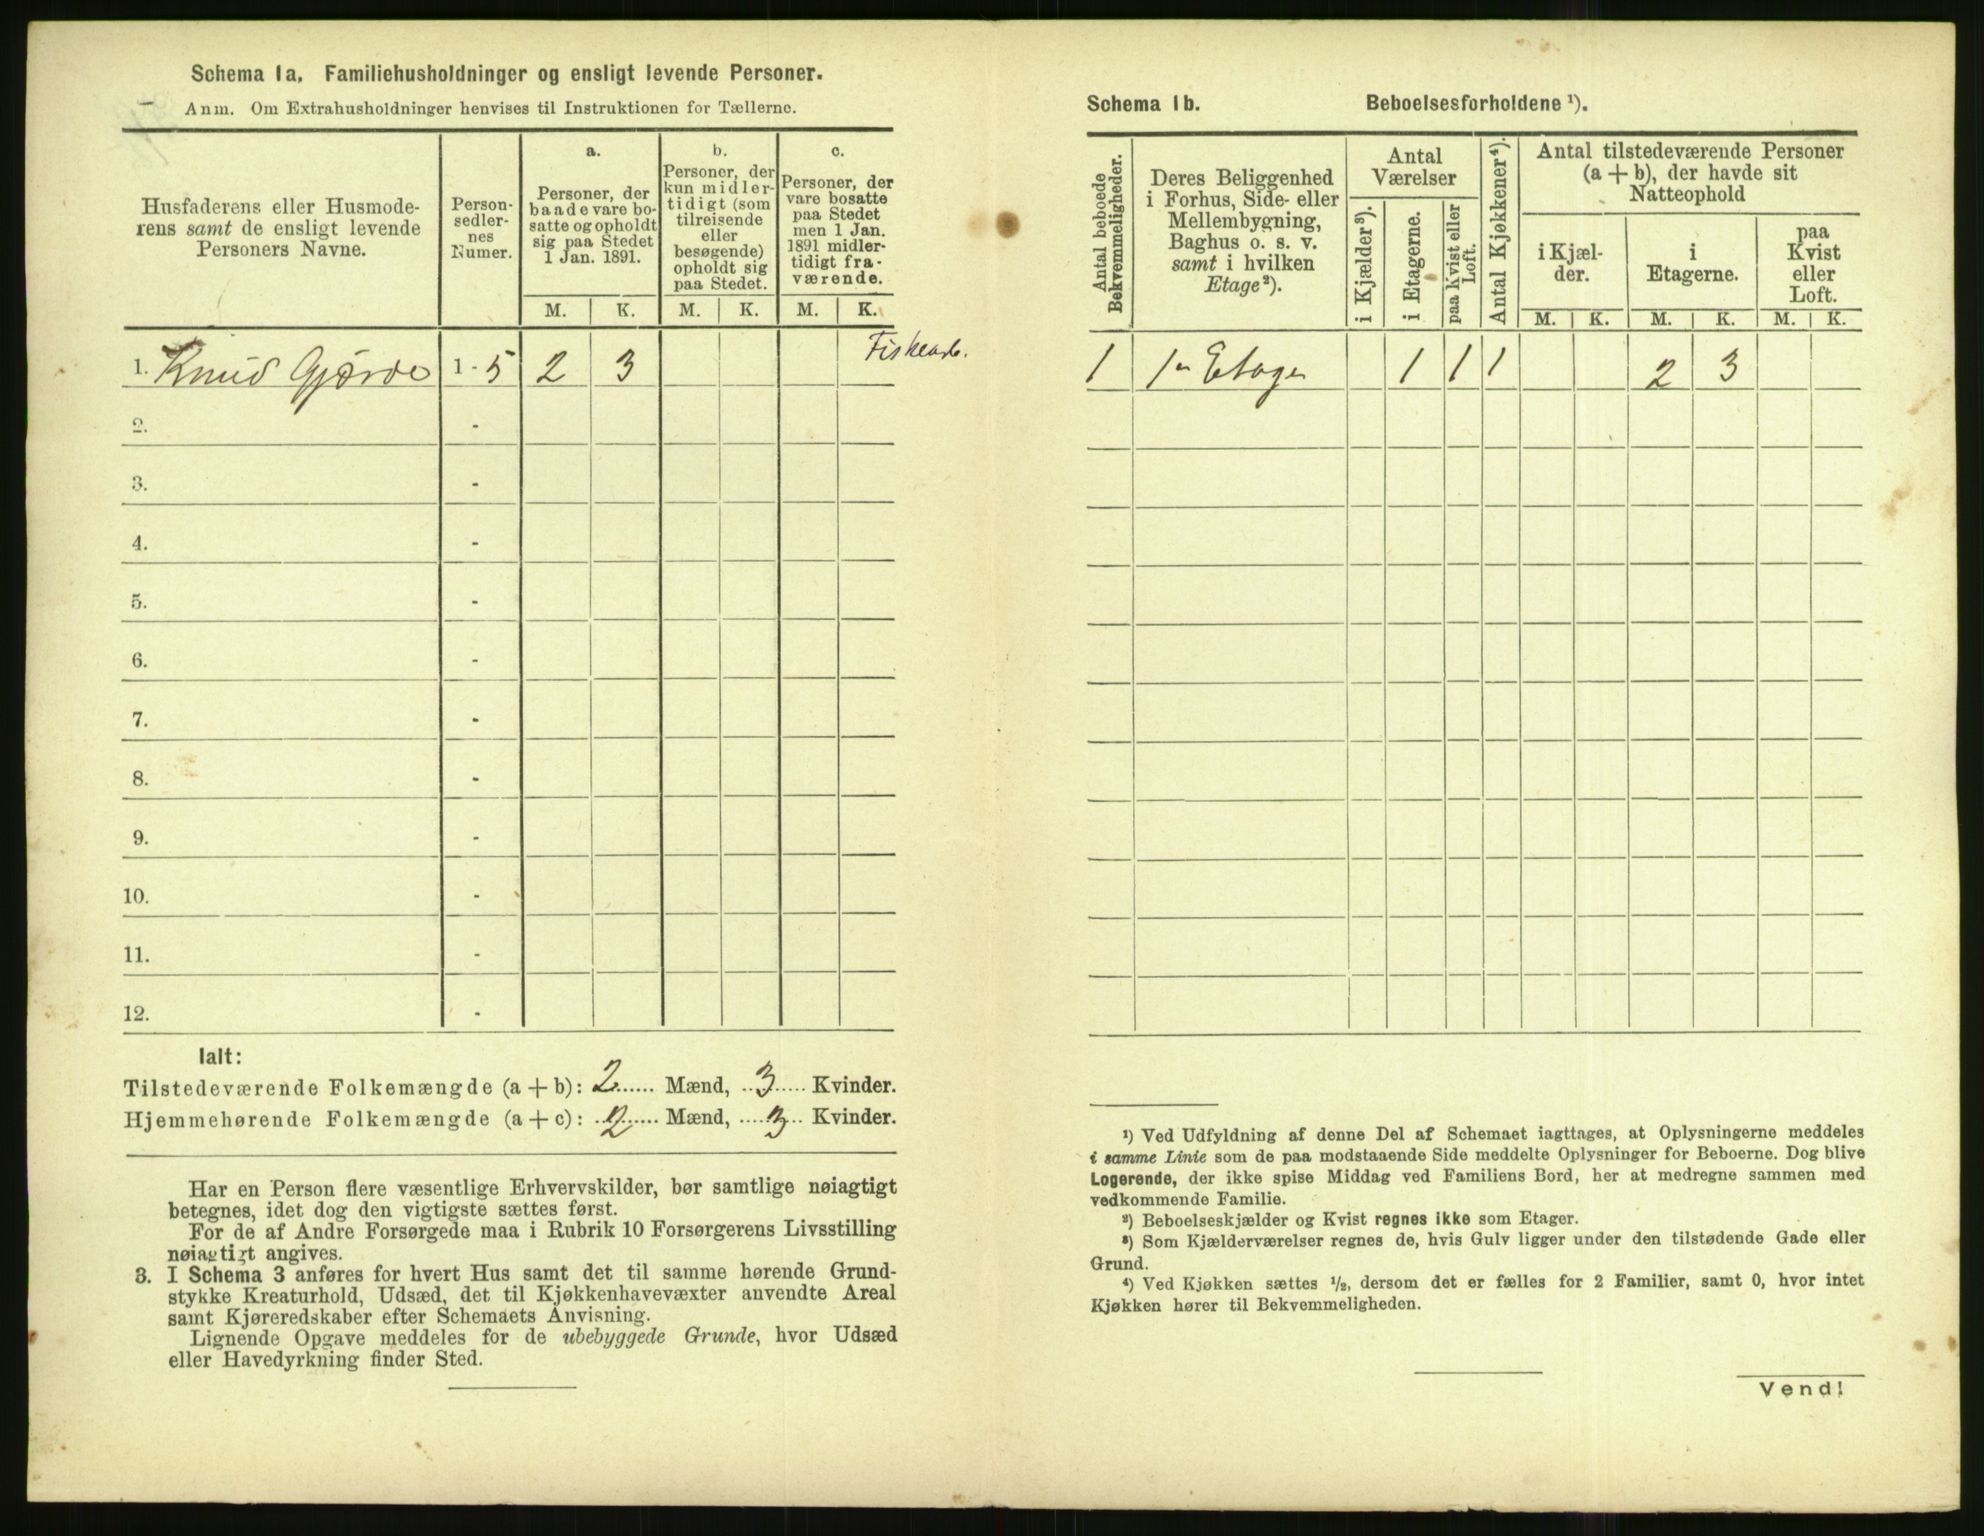 Schema 1a. Familiehusholdninger og ensligt levende Personer.
Anm. Om Extrahusholdninger henvises til Instruktionen for Tællerne.
Husfaderens eller Husmode-
rens samt de ensligt levende
Personers Navne.
Person-
sedler-
nes
Numer.
a.
Personer, der
baade vare bo-
satte og opholdt
sig paa Stedet
1 Jan. 1891.
b.
Personer, der
kun midler-
tidigt (som
tilreisende
eller
besøgende)
opholdt sig
paa Stedet.
c.
Personer, der
vare bosatte
paa Stedet
men 1 Jan.
1891 midler-
tidigt fra-
værende.
M. K. M. K. M. K.
1. Knud Gjørde 1 - 5 2 3 Fiskearb.
2. -
3. -
4. -
5. -
6. -
7. -
8. -
9. -
10. -
11. -
12. -
Ialt:
Tilstedeværende Folkemængde (a + b): 2 Mænd, 3 Kvinder.
Hjemmehørende Folkemængde (a + c): 2 Mænd, 3 Kvinder.
Har en Person flere væsentlige Erhvervskilder, bør samtlige nøiagtigt
betegnes, idet dog den vigtigste sættes først.
For de af Andre Forsørgede maa i Rubrik 10 Forsørgerens Livsstilling
nøiagtigt angives.
3. I Schema 3 anføres for hvert Hus samt det til samme hørende Grund-
stykke Kreaturhold, Udsæd, det til Kjøkkenhavevæxter anvendte Areal
samt Kjøreredskaber efter Schemaets Anvisning.
Lignende Opgave meddeles for de ubebyggede Grunde, hvor Udsæd
eller Havedyrkning finder Sted.
Schema 1b. Beboelsesforholdene ¹).
Antal beboede
Bekvemmeligheder.
Deres Beliggenhed
i Forhus, Side- eller
Mellembygning,
Baghus o. s. v.
samt i hvilken
Etage²).
Antal
Værelser
i Kjælder³).
i Etagerne.
paa Kvist eller
Loft.
Antal Kjøkkener⁴).
Antal tilstedeværende Personer
(a + b), der havde sit
Natteophold
i Kjæl-
der.
i
Etagerne.
paa
Kvist
eller
Loft.
M. K. M. K. M. K.
1 1ⁿ Etage 1 1 1 2 3
¹) Ved Udfyldning af denne Del af Schemaet iagttages, at Oplysningerne meddeles
i samme Linie som de paa modstaaende Side meddelte Oplysninger for Beboerne. Dog blive
Logerende, der ikke spise Middag ved Familiens Bord, her at medregne sammen med
vedkommende Familie.
²) Beboelseskjælder og Kvist regnes ikke som Etager.
³) Som Kjælderværelser regnes de, hvis Gulv ligger under den tilstødende Gade eller
Grund.
⁴) Ved Kjøkken sættes ½, dersom det er fælles for 2 Familier, samt 0, hvor intet
Kjøkken hører til Bekvemmeligheden.
Vend!